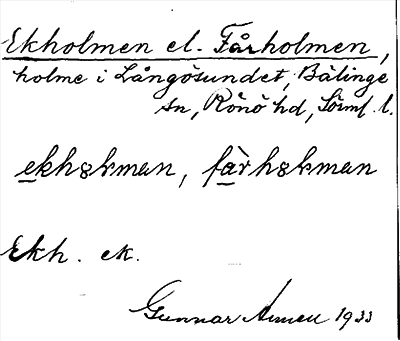 Ekholmen el. Fårholmen,
holme i Långösundet, Bälinge
sn, Rönö hd, Sörml. l.
ekhɷlman, fàrhɷlman
Ekh. ek.
Gunnar 1933